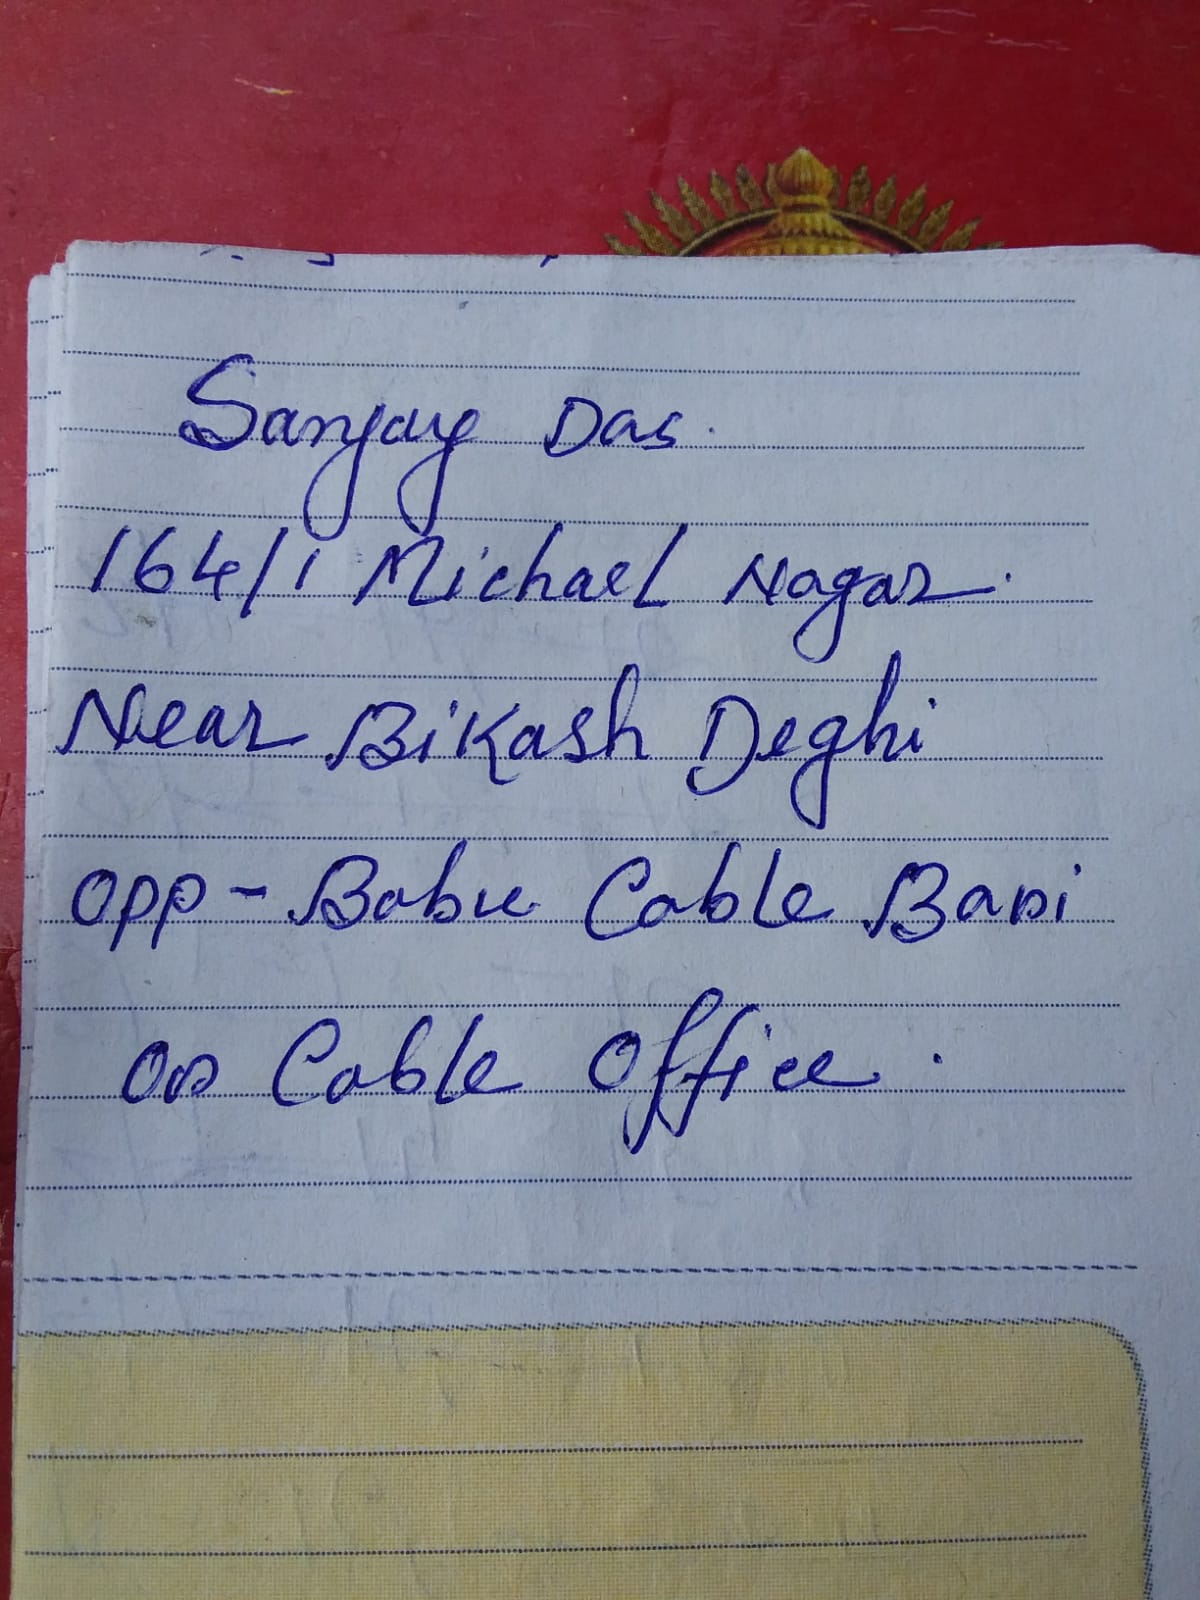 Sanjay Das.
164/1 Michael Nagar.
Near Bikash Deghi
Opp - Babu Cable Bari
Or Cable Office.